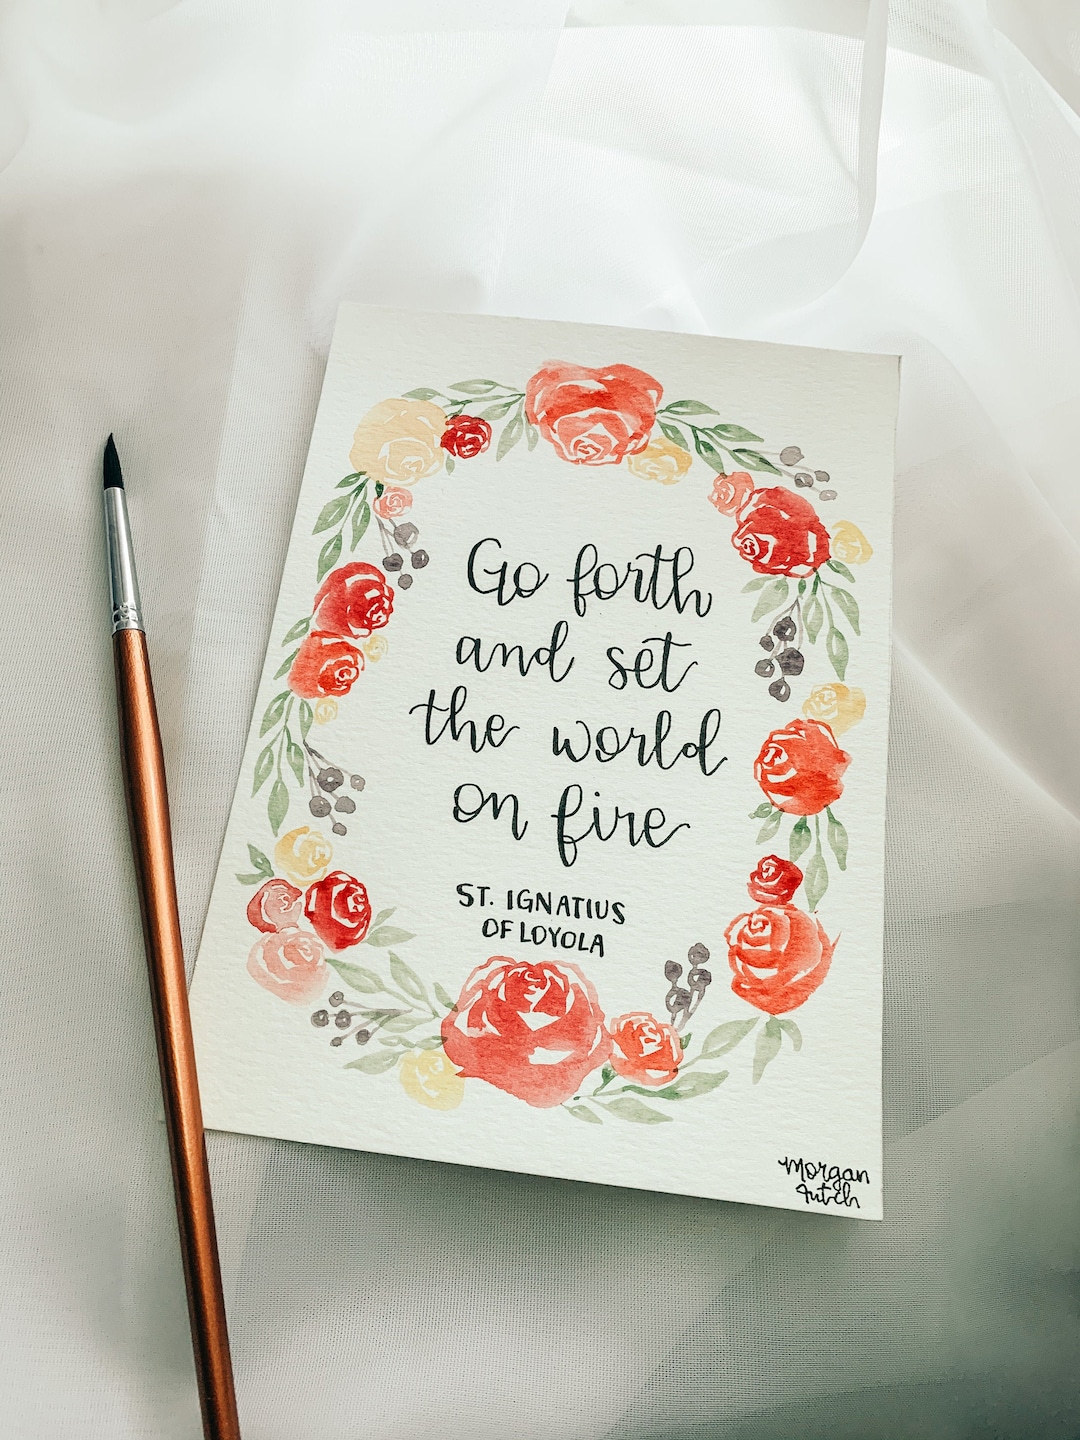 Go forth
and set
the world
on fire
ST. IGNATIUS
OF LOYOLA
Morgan